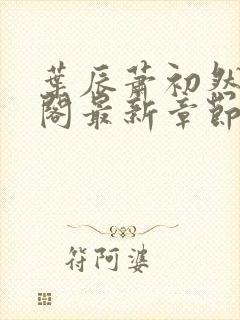 葉辰蕭初然
閣最新章節
符阿婆